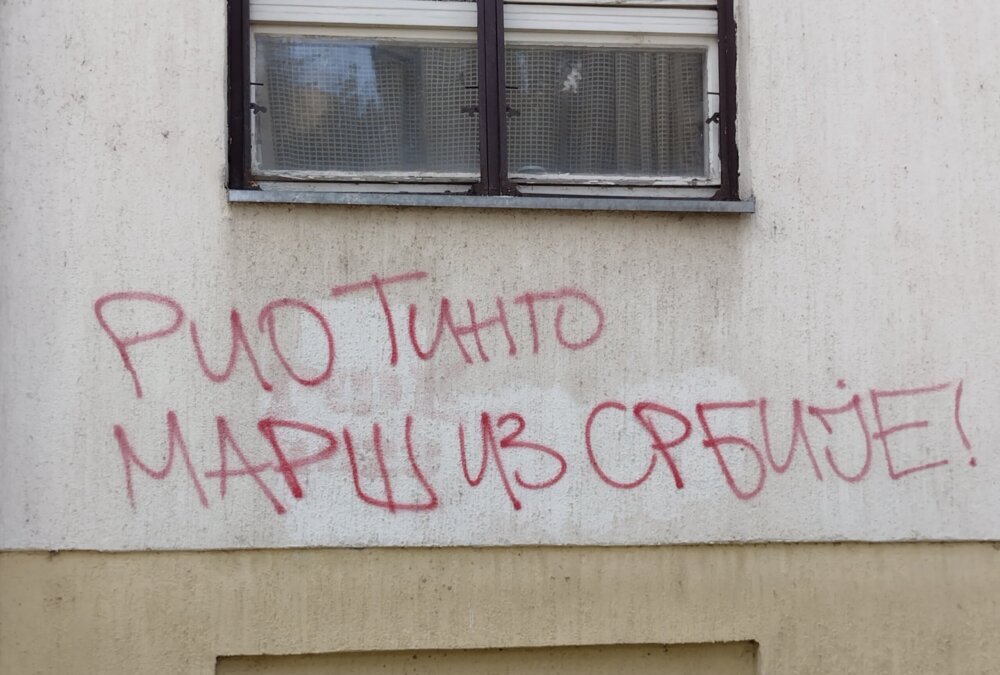 РИО ТИНТО
МАРШ ИЗ СРБИЈЕ!